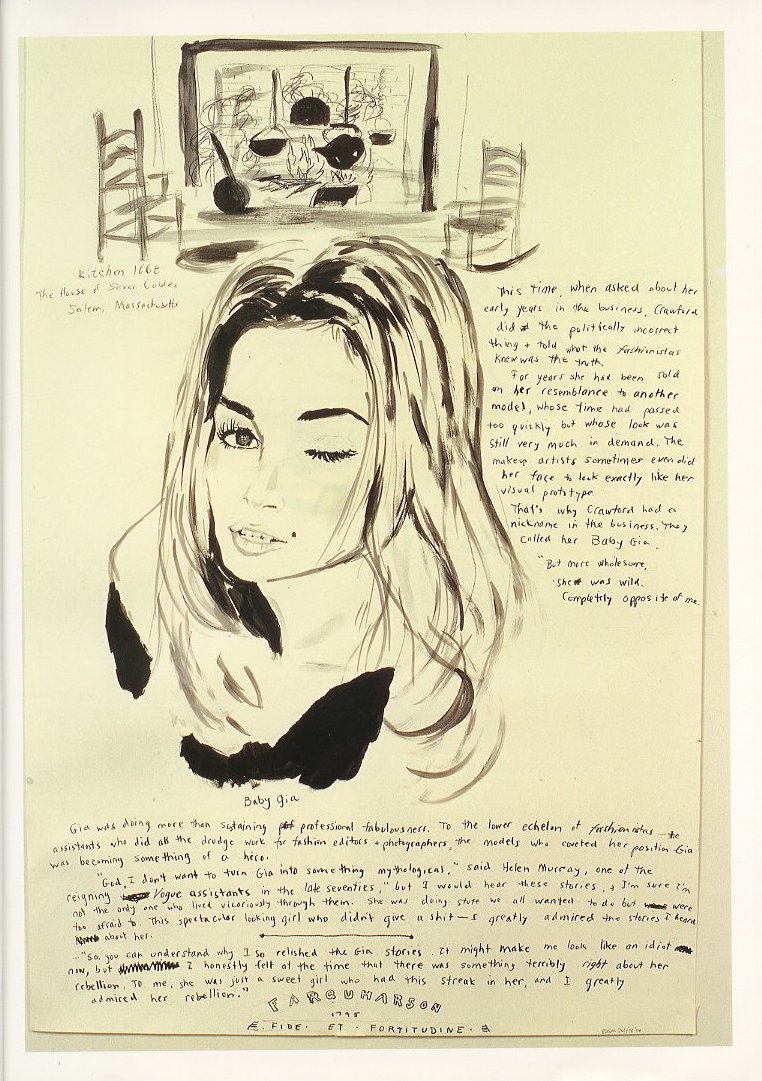 Kitchen 1668
The House of Seven Gables
Salem, Massachusetts
This time, when asked about her
early years in the business, Crawford
did the politically incorrect
thing + told what the fashionistas
knew was the truth.
For years she had been sold
on her resemblance to another
model, whose time had passed
too quickly but whose look was
still very much in demand. The
makeup artists sometimes even did
her face to look exactly like her
visual prototype.
That's why Crawford had a
nickname in the business. They
called her Baby Gia.
"But more wholesome.
She was wild.
Completely opposite of me.
Baby Gia
Gia was doing more than sustaining professional fabulousness. To the lower echelon of fashionistas — the
assistants who did all the drudge work for fashion editors + photographers, the models who coveted her position - Gia
was becoming something of a hero.
"God, I don't want to turn Gia into something mythological," said Helen Murray, one of the
reigning Vogue assistants in the late seventies, "but I would hear these stories, + I'm sure I'm
not the only one who lived vicariously through them. She was doing stuff we all wanted to do but were
too afraid to. This spectacular looking girl who didn't give a shit — I greatly admired the stories I heard
about her.
..."So, you can understand why I so relished the Gia stories. It might make me look like an idiot
now, but I honestly felt at the time that there was something terribly right about her
rebellion. To me, she was just a sweet girl who had this streak in her, and I greatly
admired her rebellion."
FARQUHARSON
1795
FIDE · ET · FORTITUDINE ·